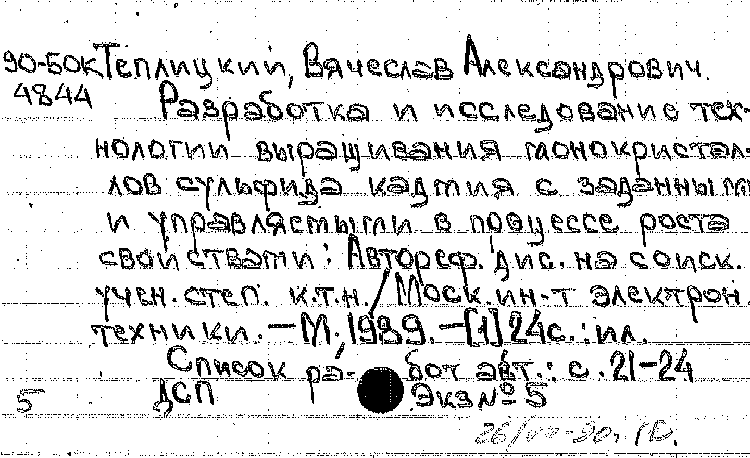 90-50к Теплицкий, Вячеслав Александрович.
4844 Разработка и исследование тех-
нологии выращивания монокристал-
лов сульфида кадмия с заданными
и управляемыми в процессе роста
свойствами: Автореф. дис. на соиск.
учен. степ. к.т.н. / Моск. ин-т электрон.
техники. — М., 1989. — [1] 24с.: ил.
Список ра- бот авт.: с. 21-24
5 ДСП Экз № 5